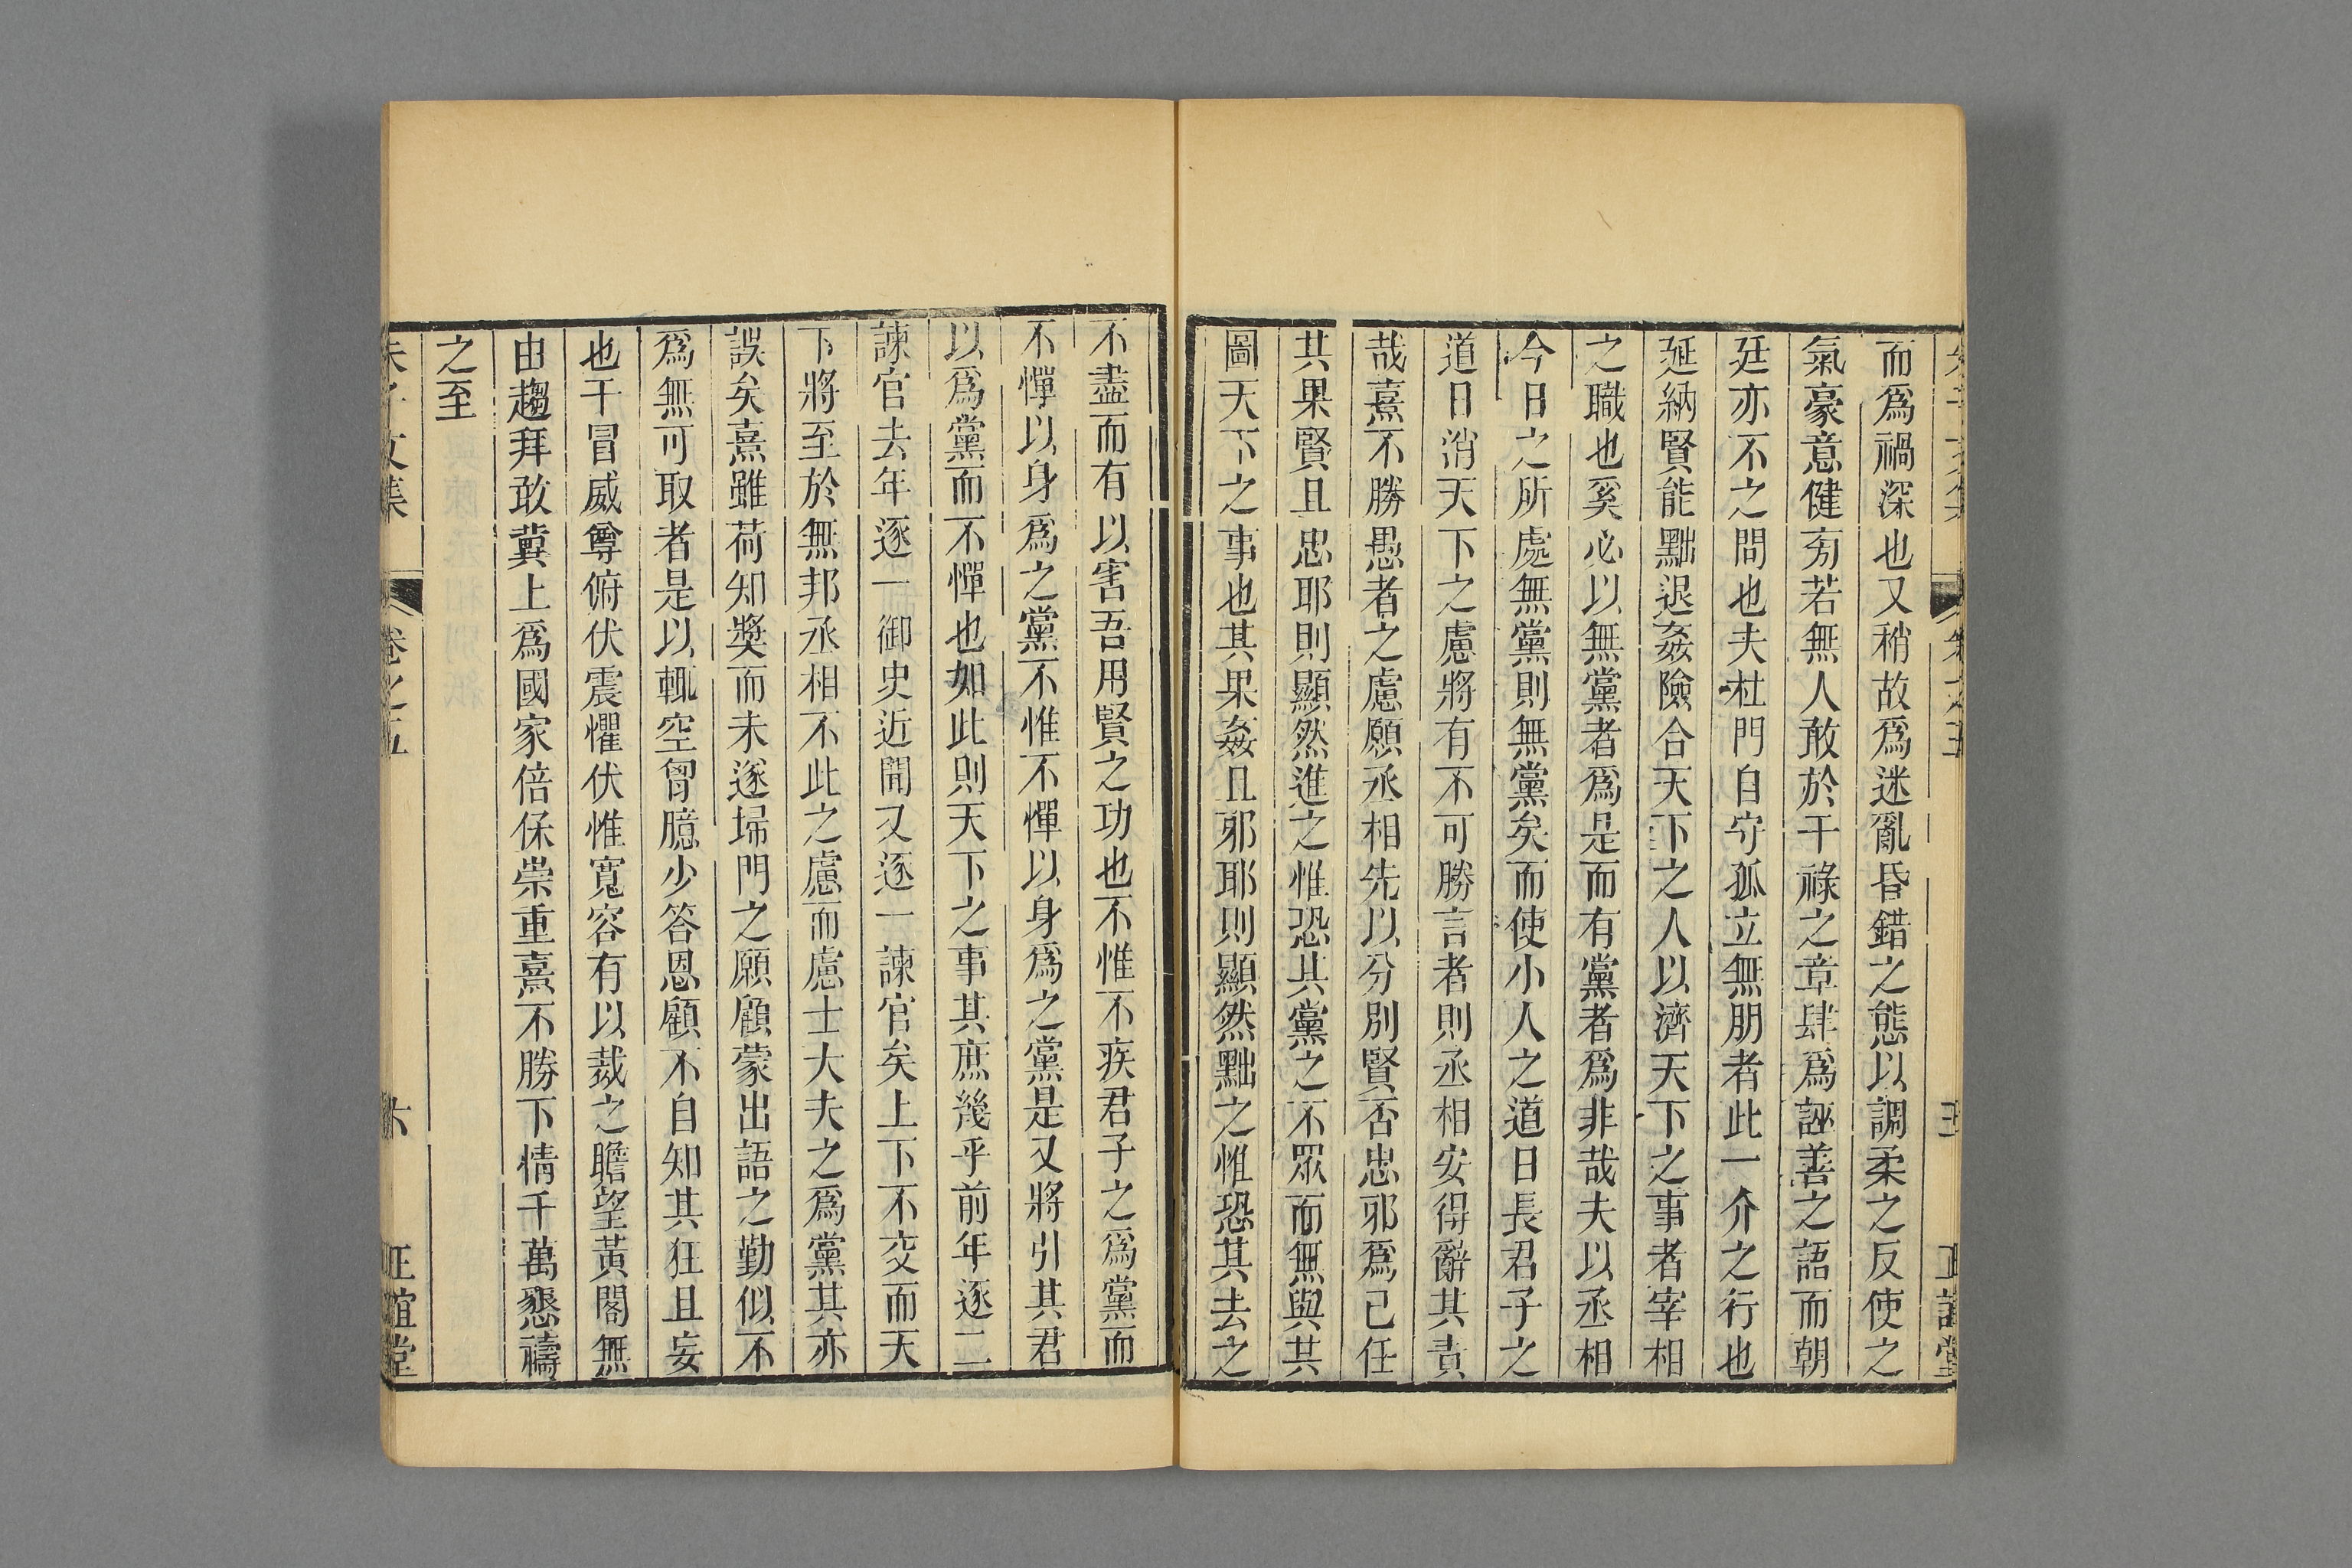 而爲禍深也又稍故爲迷亂昏錯之態以調柔之反使之
氣豪意健旁若無人敢於干祿之章肆爲誣善之語而朝
廷亦不之問也夫杜門自守孤立無朋者此一介之行也
延納賢能黜退姦險合天下之人以濟天下之事者宰相
之職也奚必以無黨者爲是而有黨者爲非哉夫以丞相
今日之所處無黨則無黨矣而使小人之道日長君子之
道日消天下之慮將有不可勝言者則丞相安得辭其責
哉熹不勝愚者之慮願丞相先以分別賢否忠邪爲己任
其果賢且忠耶則顯然進之惟恐其黨之不眾而無與共
圖天下之事也其果姦且邪耶則顯然黜之惟恐其去之
不盡而有以害吾用賢之功也不惟不疾君子之爲黨而
不憚以身爲之黨不惟不憚以身爲之黨是又將引其君
以爲黨而不憚也如此則天下之事其庶幾乎前年逐二
諫官去年逐一御史近聞又逐一諫官矣上下不交而天
下將至於無邦丞相不此之慮而慮士大夫之爲黨其亦
誤矣熹雖荷知獎而未遂埽門之願顧蒙出語之勤似不
爲無可取者是以輒空胷臆少答恩顧不自知其狂且妄
也干冒威尊俯伏震懼伏惟寬容有以裁之瞻望黃閣無
由趨拜敢冀上爲國家倍保崇重熹不勝下情千萬懇禱
之至
朱子文集
卷之五
六
正誼堂